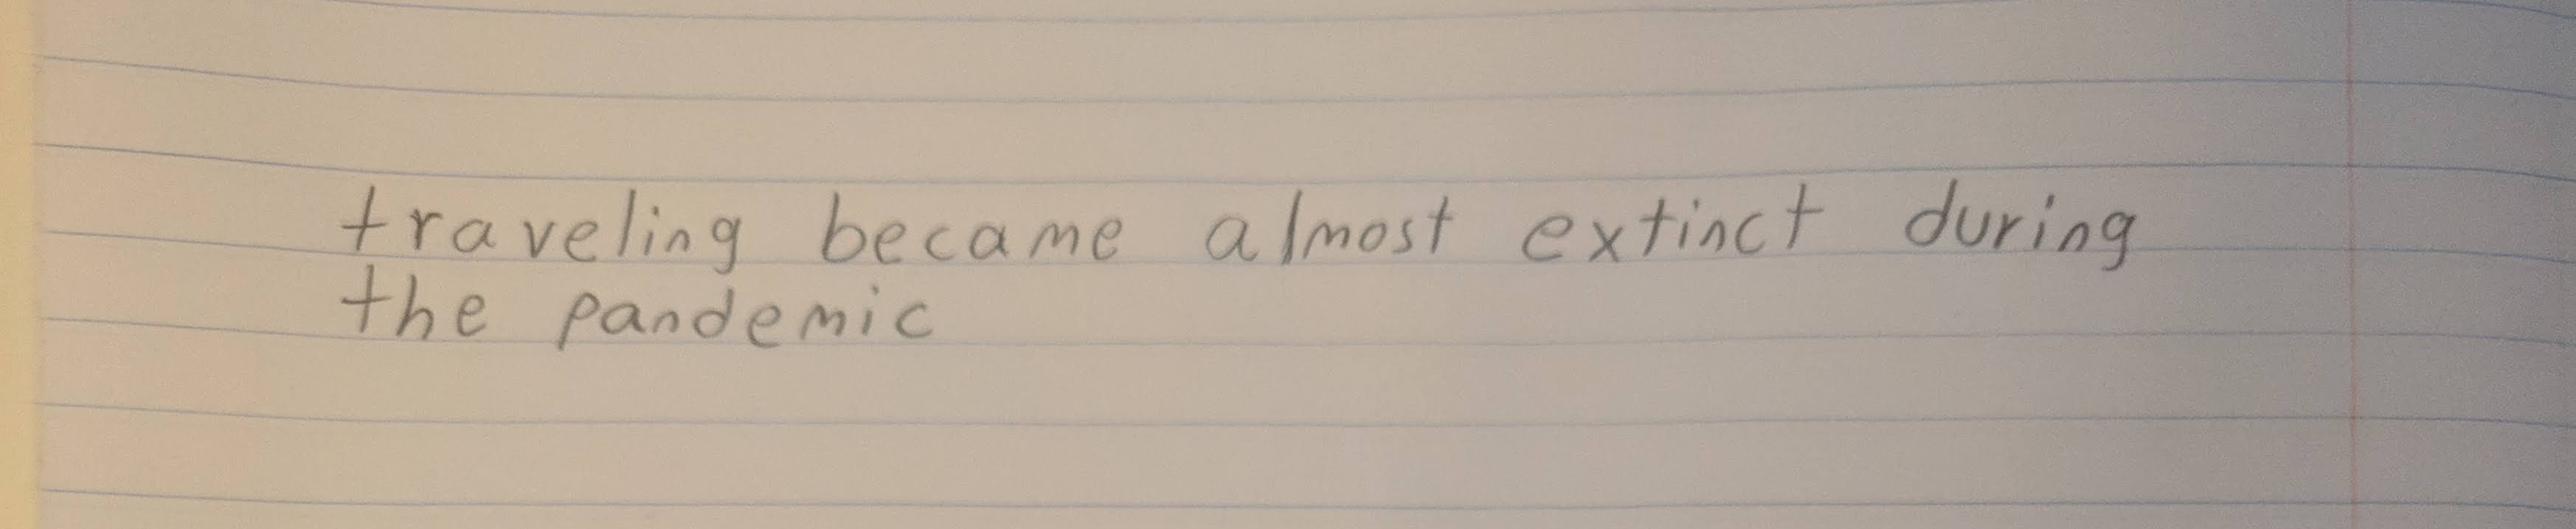 traveling became almost extinct during
the pandemic